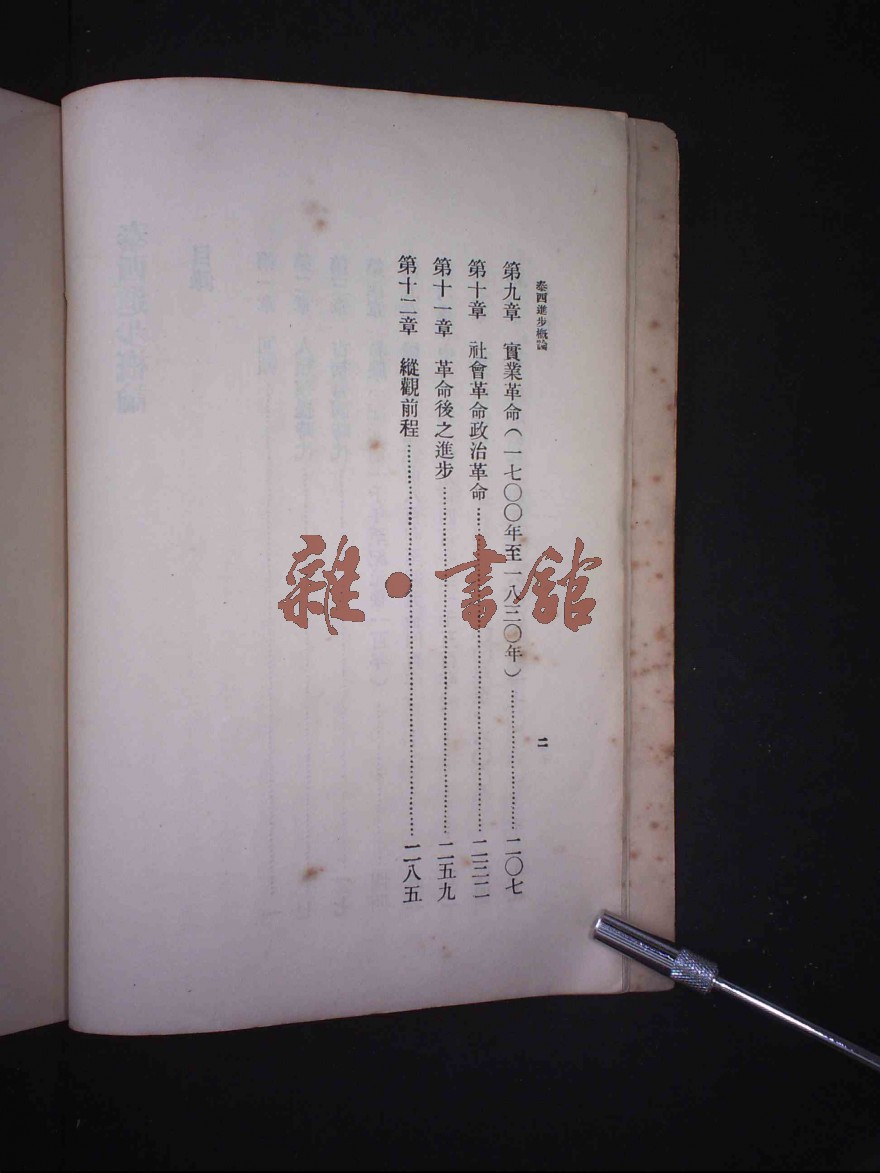 泰西進步概論
二
第九章　實業革命（一七〇〇年至一八三〇年）……二〇七
第十章　社會革命政治革命……二三一
第十一章　革命後之進步……二五九
第十二章　縱觀前程……二八五
雜·書館
泰西進步概論
目錄